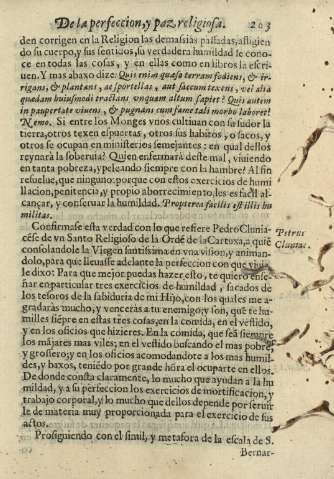 De la perfeccion, y paz religiosa. 203
den corrigen en la Religion las demasias passadas, afligien
do su cuerpo, y sus sentidos, su verdadera humildad se cono-
ce en todas las cosas, y en ellas como en libros la escri-
uen. Y mas abaxo dize: Quis enim quasi terram fodiens, & ir-
rigans, & plantans, aes portellas, aut saccum texens, vel alia
quædam huiusmodi tractans vnquam altum sapiet? Quis autem
in paupertate viuens, & pugnans cum fame tali morbo laboret?
Nemo. Si entre los Monges vnos cultiuan con su sudor la
tierra, otros texen espuertas, otros sus habitos, o sacos, y
otros se ocupan en ministerios semejantes: en qual dellos
reynarà la soberuia? Quien enfermarà deste mal, viuiendo
en tanta pobreza, y peleando siempre con la hambre? Al fin
resuelue, que ninguno: porque con estos exercicios de humi
llacion, penitencia, y propio aborrecimiento, les es facil al-
cançar, y conseruar la humildad. Propterea facilis est illis hu
militas.
Confirmase esta verdad con lo que refiere Pedro Clunia-
cése de vn Santo Religioso de la Ordé de la Cartuxa, a quiē
consolandole la Virgen santissima en vna vision, y animan-
dolo, para que lleuasse adelante la perfeccion con que viuia
le dixo: Para que mejor puedas hazer esto, te quiero ense-
ñar en particular tres exercicios de humildad, sacados de
los tesoros de la sabiduria de mi Hijo, con los quales me a-
gradaràs mucho, y venceràs a tu enemigo; y son, que te hu-
milles siépre en estas tres cosas, en la comida, en el vestido,
y en los oficios que hizieres. En la comida, que seā siempre
los májares mas viles; en el vestido buscando el mas pobre,
y grosero; y en los oficios acomodandote a los mas humil-
des, y baxos, teniédo por grande hōra el ocuparte en ellos.
De donde consta claramente, lo mucho que ayudan a la hu
mildad, y a su perfeccion los exercicios de mortificacion, y
trabajo corporal, y lo mucho que dellos depende por seruir
le de materia muy proporcionada para el exercicio de sus
actos.
Prosiguiendo con el simil, y metafora de la escala de S.
Bernar-
Petrus
Cluniac.